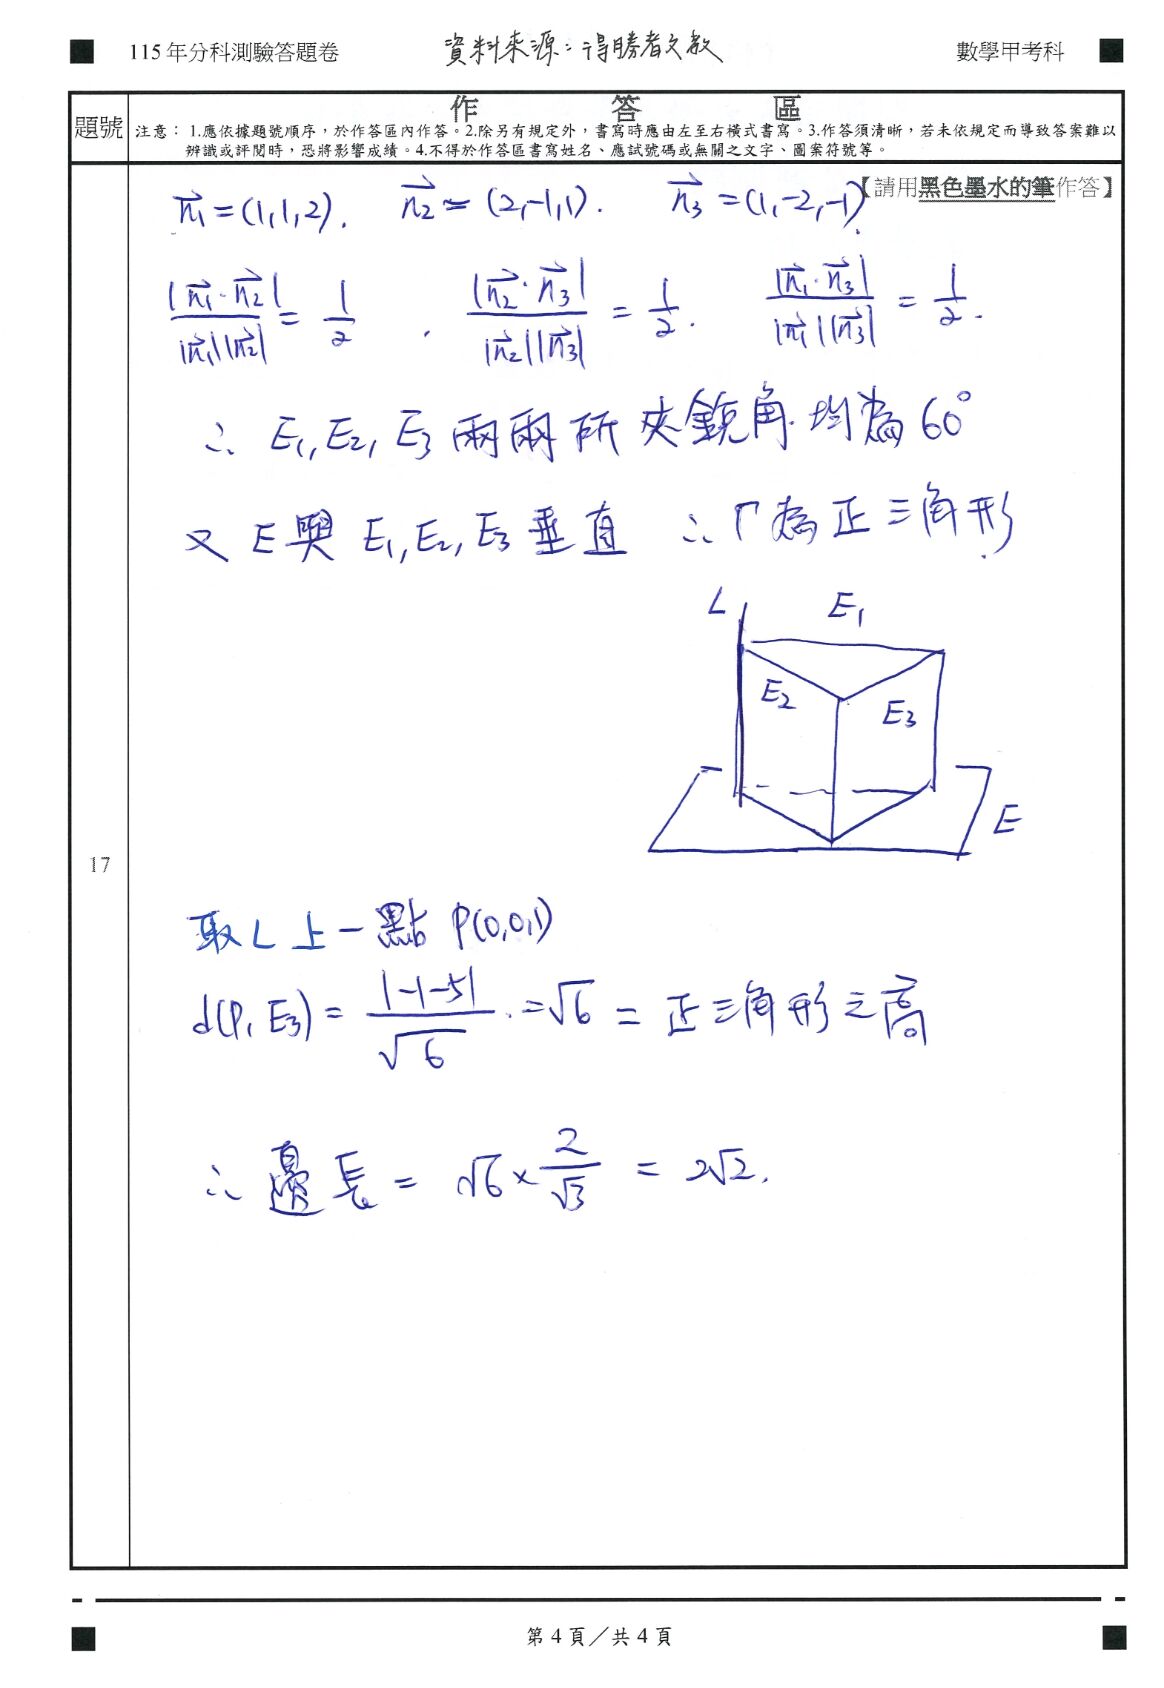 115年分科測驗答題卷 資料來源：得勝者文教 數學甲考科
題號 作答區
注意：1.應依據題號順序，於作答區內作答。2.除另有規定外，書寫時應由左至右橫式書寫。3.作答須清晰，若未依規定而導致答案難以
辨識或評閱時，恐將影響成績。4.不得於作答區書寫姓名、應試號碼或無關之文字、圖案符號等。
【請用黑色墨水的筆作答】
n₁⃗ = (1,1,2). n₂⃗ = (2,-1,1). n₃⃗ = (1,-2,-1).
|n₁⃗·n₂⃗| / |n₁⃗||n₂⃗| = 1/2 , |n₂⃗·n₃⃗| / |n₂⃗||n₃⃗| = 1/2. |n₁⃗·n₃⃗| / |n₁⃗||n₃⃗| = 1/2.
∴ E₁, E₂, E₃ 兩兩所夾銳角均為 60°
又 E 與 E₁, E₂, E₃ 垂直 ∴ Γ 為正三角形
L E₁
E₂ E₃
E
17
取 L 上一點 P(0,0,1)
d(P, E₃) = |-1-5| / √6 = √6 = 正三角形之高
∴ 邊長 = √6 × 2/√3 = 2√2.
第 4 頁／共 4 頁